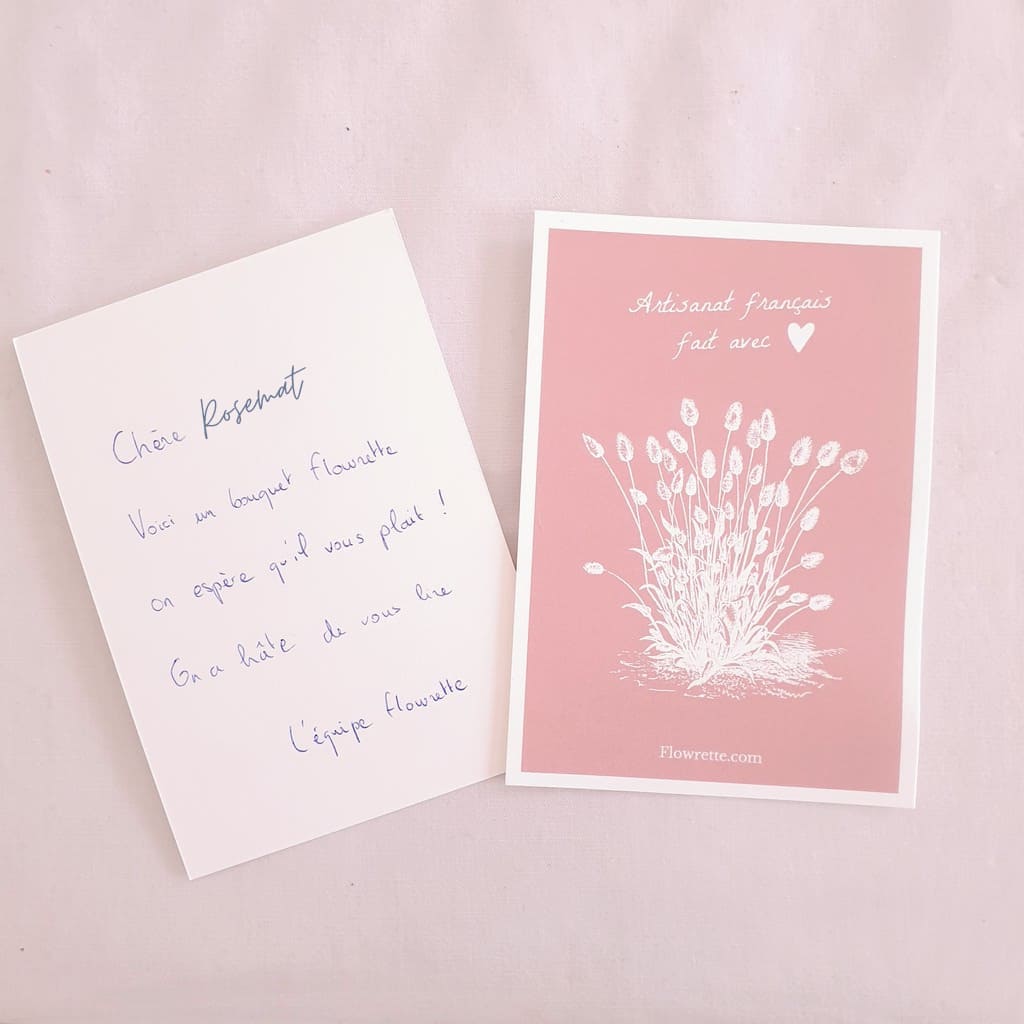 Chère Rosemat
Voici un bouquet flowrette
on espère qu'il vous plait !
On a hâte de vous lire
L'équipe flowrette
Artisanat français
fait avec
Flowrette.com